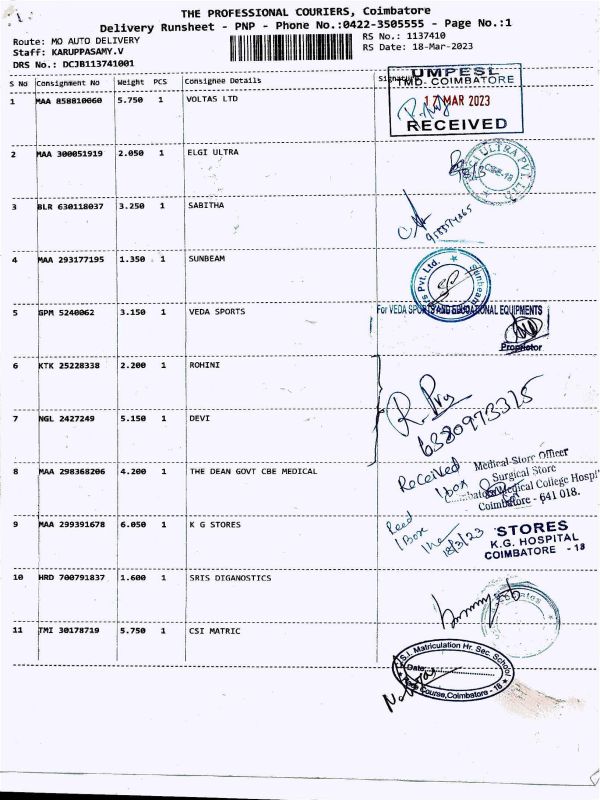 THE PROFESSIONAL COURIERS, Coimbatore
Delivery Runsheet - PNP - Phone No.:0422-3505555 - Page No.:1
Route: MO AUTO DELIVERY
RS No.: 1137410
Staff: KARUPPASAMY.V
RS Date: 18-Mar-2023
DRS No.: DCJB113741001
S No Consignment No Weight PCS Consignee Details Signature
1 MAA 858810060 5.750 1 VOLTAS LTD
UMPESL
TMD-COIMBATORE
17 MAR 2023
RECEIVED
2 MAA 300051919 2.050 1 ELGI ULTRA
ULTRA PVT. LTD
3 BLR 630118037 3.250 1 SABITHA
4 MAA 293177195 1.350 1 SUNBEAM
Sunbeam Pvt. Ltd.
5 GPM 5240062 3.150 1 VEDA SPORTS
For VEDA SPORTS AND EDUCATIONAL EQUIPMENTS
Proprietor
6 KTK 25228338 2.200 1 ROHINI
7 NGL 2427249 5.150 1 DEVI
6380973375
8 MAA 298368206 4.200 1 THE DEAN GOVT CBE MEDICAL
Received
1 box
Medical Store Officer
Surgical Store
Coimbatore Medical College Hospi
Coimbatore - 641 018.
9 MAA 299391678 6.050 1 K G STORES
Recd
1 Box
18/3/23
STORES
K.G. HOSPITAL
COIMBATORE - 18
10 HRD 700791837 1.600 1 SRIS DIGANOSTICS
11 TMI 30178719 5.750 1 CSI MATRIC
C.S.I. Matriculation Hr. Sec. School
Date:
Race Course, Coimbatore - 18